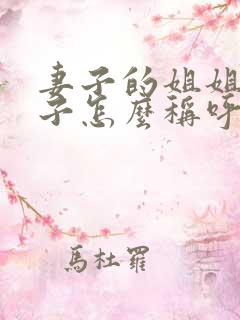 妻子的姐姐
子怎麼稱呼
馬杜羅